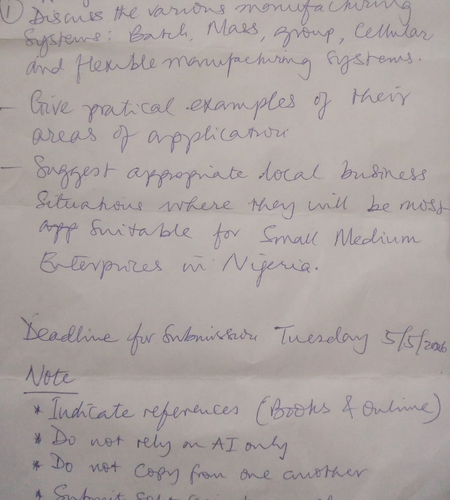 ① Discuss the various manufacturing
Systems: Batch, Mass, group, Cellular
and flexible manufacturing systems.
- Give pratical examples of their
areas of application
- Suggest appropriate local business
Situations where they will be most
app Suitable for Small Medium
Enterprizes in Nigeria.
Deadline for Submission Tuesday 5/5/2026
Note
* Indicate references (Books & Online)
* Do not rely on AI only
* Do not Copy from one another
* Submit